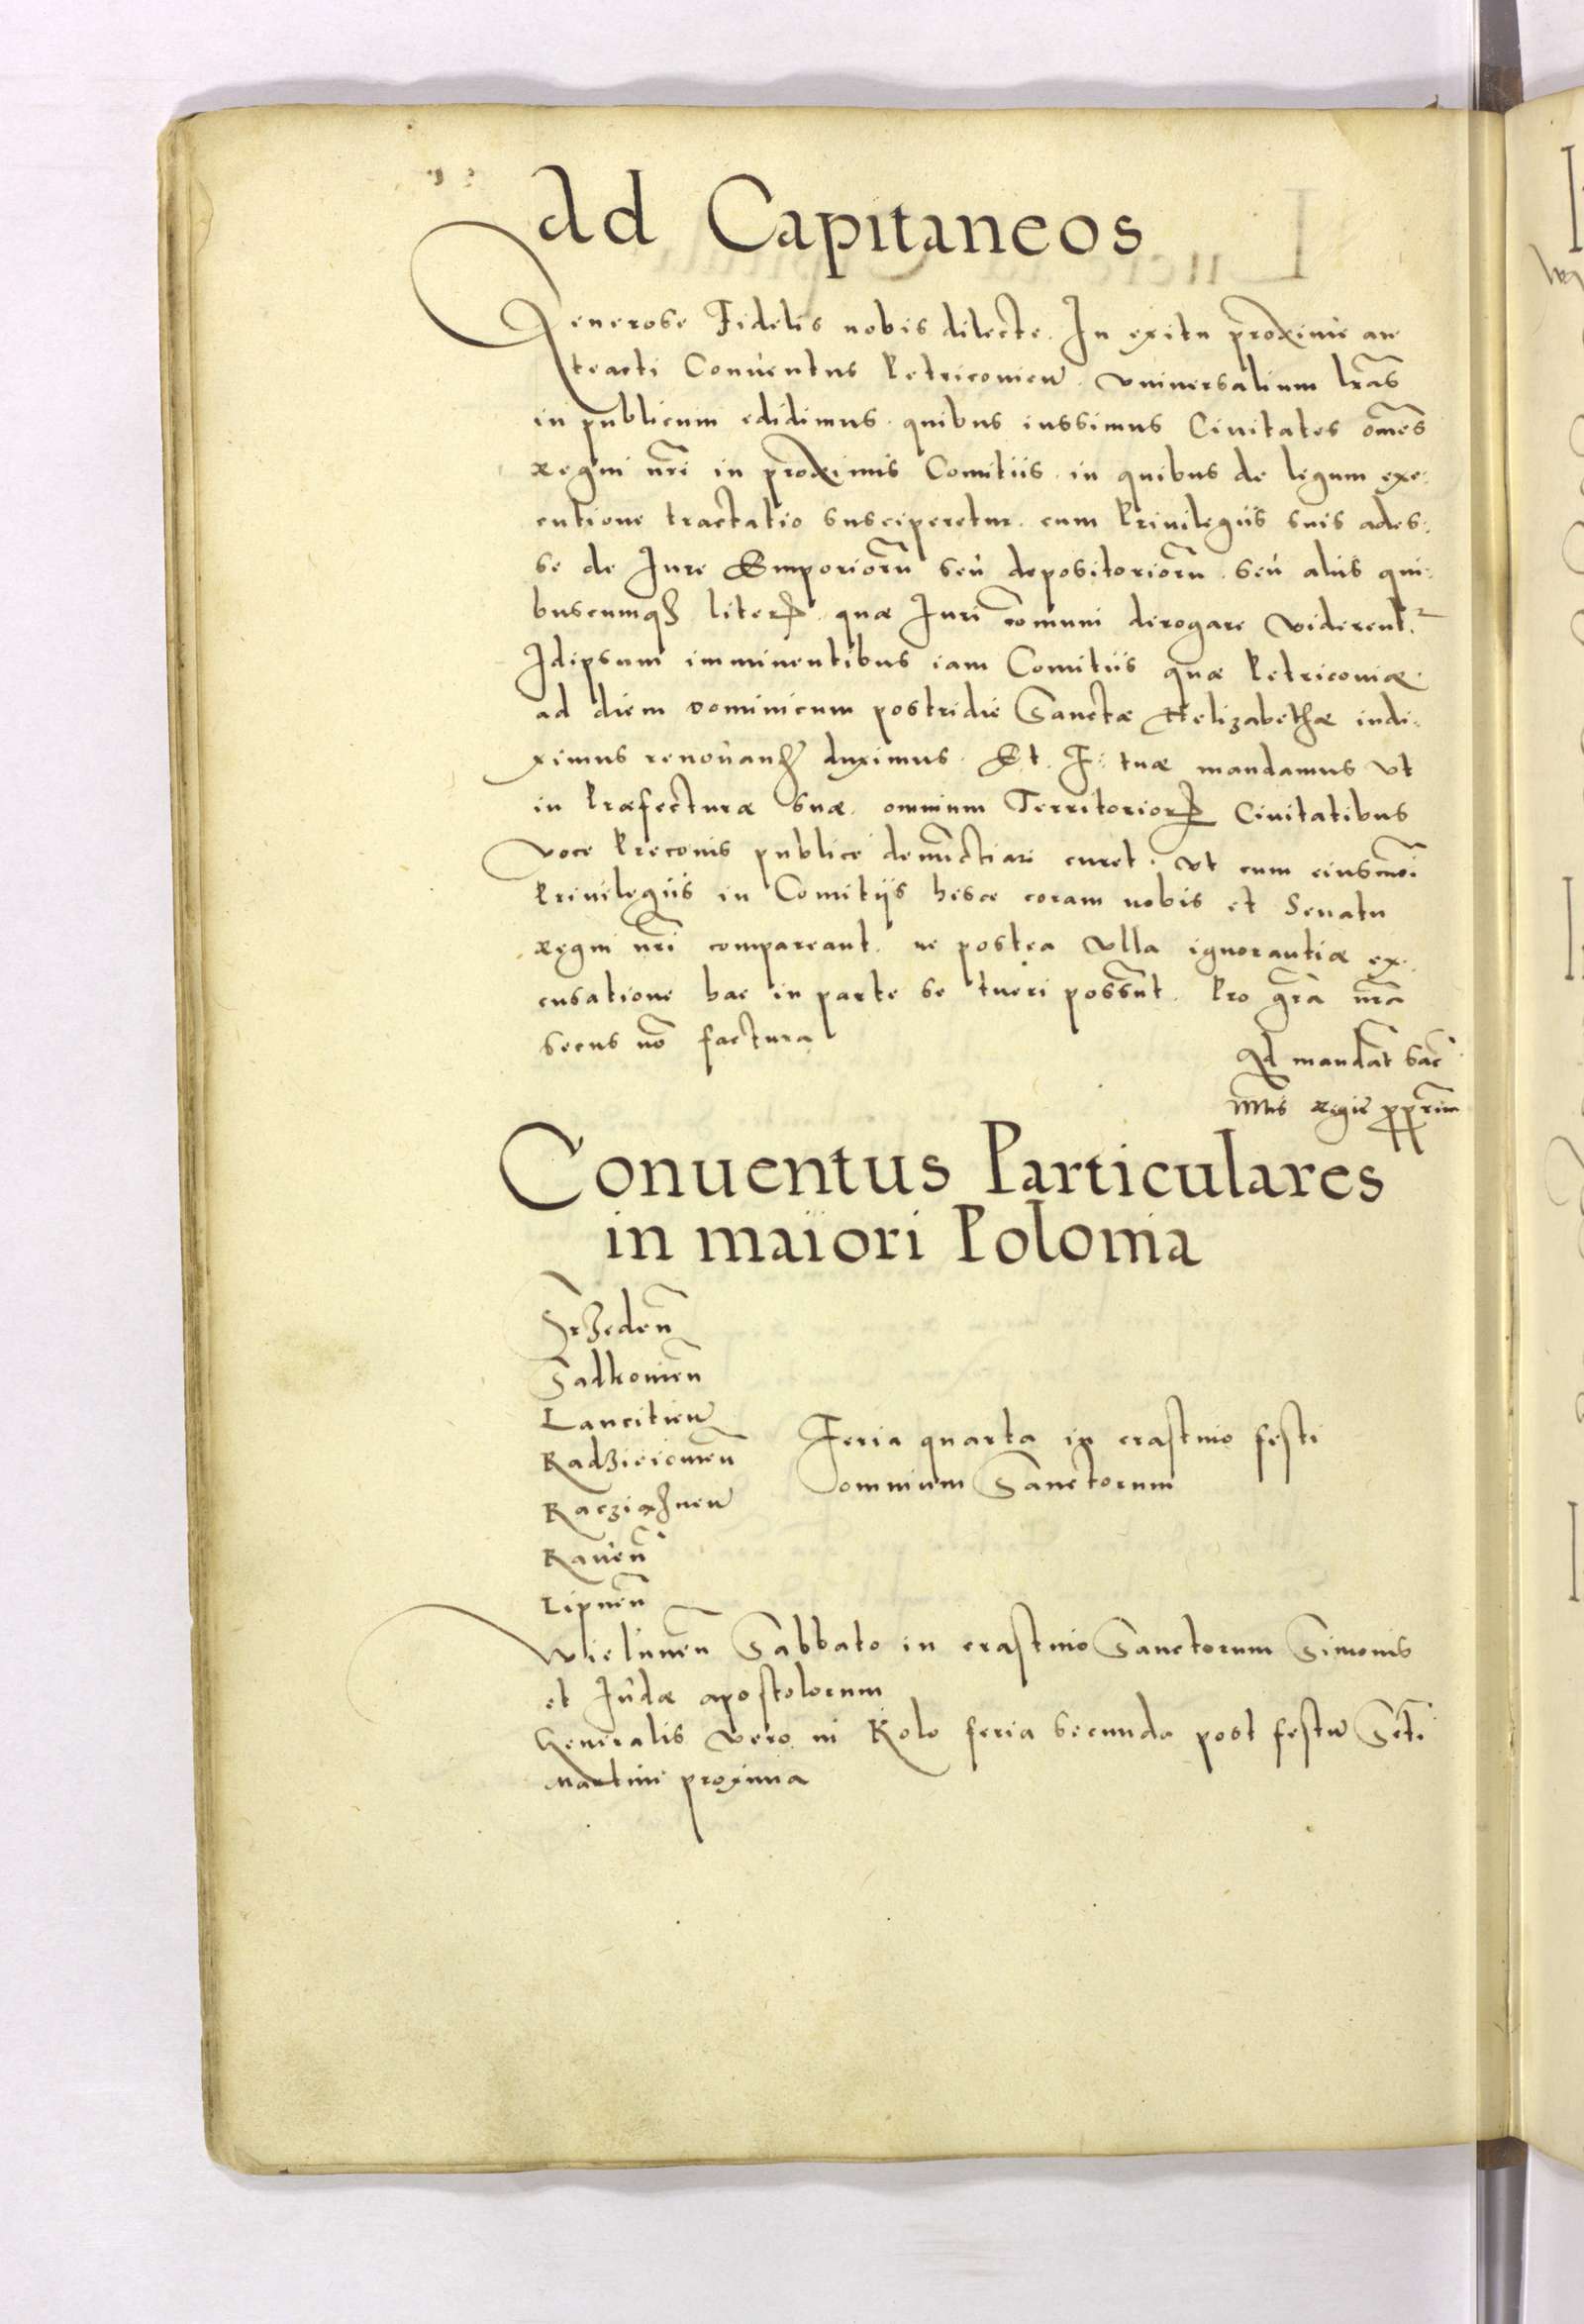 Ad Capitaneos
Generose Fidelis nobis dilecte. In exitu proxime an
teacti Conventus Petriconien̄. universalium lr̄as
in publicum edidimus. quibus iussimus Civitates om̄es
Regni nr̄i in proximis Comitiis. in quibus de legum exe:
cutione tractatio susciperetur. cum Privilegiis suis ades:
se de Iure Emporiorū seu depositoriorū. seu aliis qui:
buscumqꝫ literꝝ. quæ Iuri com̄uni derogare viderent.
Idipsum imminentibus iam Comitiis quæ Petriconiæ.
ad diem Dominicum postridie Sanctæ Helizabethæ indi:
ximus renovanꝺ duximus. Et. F: tuæ mandamus ut
in Præfecturæ suæ. omnium Territoriorꝝ Civitatibus
voce Preconis publice denunctiari curet. ut cum eiusmōi
Privilegiis in Comitijs hisce coram nobis et Senatu
Regni nr̄i compareant. ne postea ulla ignorantiæ ex.
cusatione hac in parte se tueri possūnt. Pro gr̄a nr̄a
secus nō factura
Ad mandat̄ sac̄
Mtis Regiē pp̄rium
Conuentus Particulares
in maiori Polonia
Srzeden̄
Sadkovien̄
Lancitien̄
Radzieiovien̄
Racziąznen̄
Raven̄
Lipnen̄
Feria quarta in crastino festi
omnium Sanctorum
Wielunen̄ Sabbato in crastino Sanctorum Simonis
et Iudæ apostolorum
Generalis vero in Kolo feria secunda post festū Scti
Martini proxima